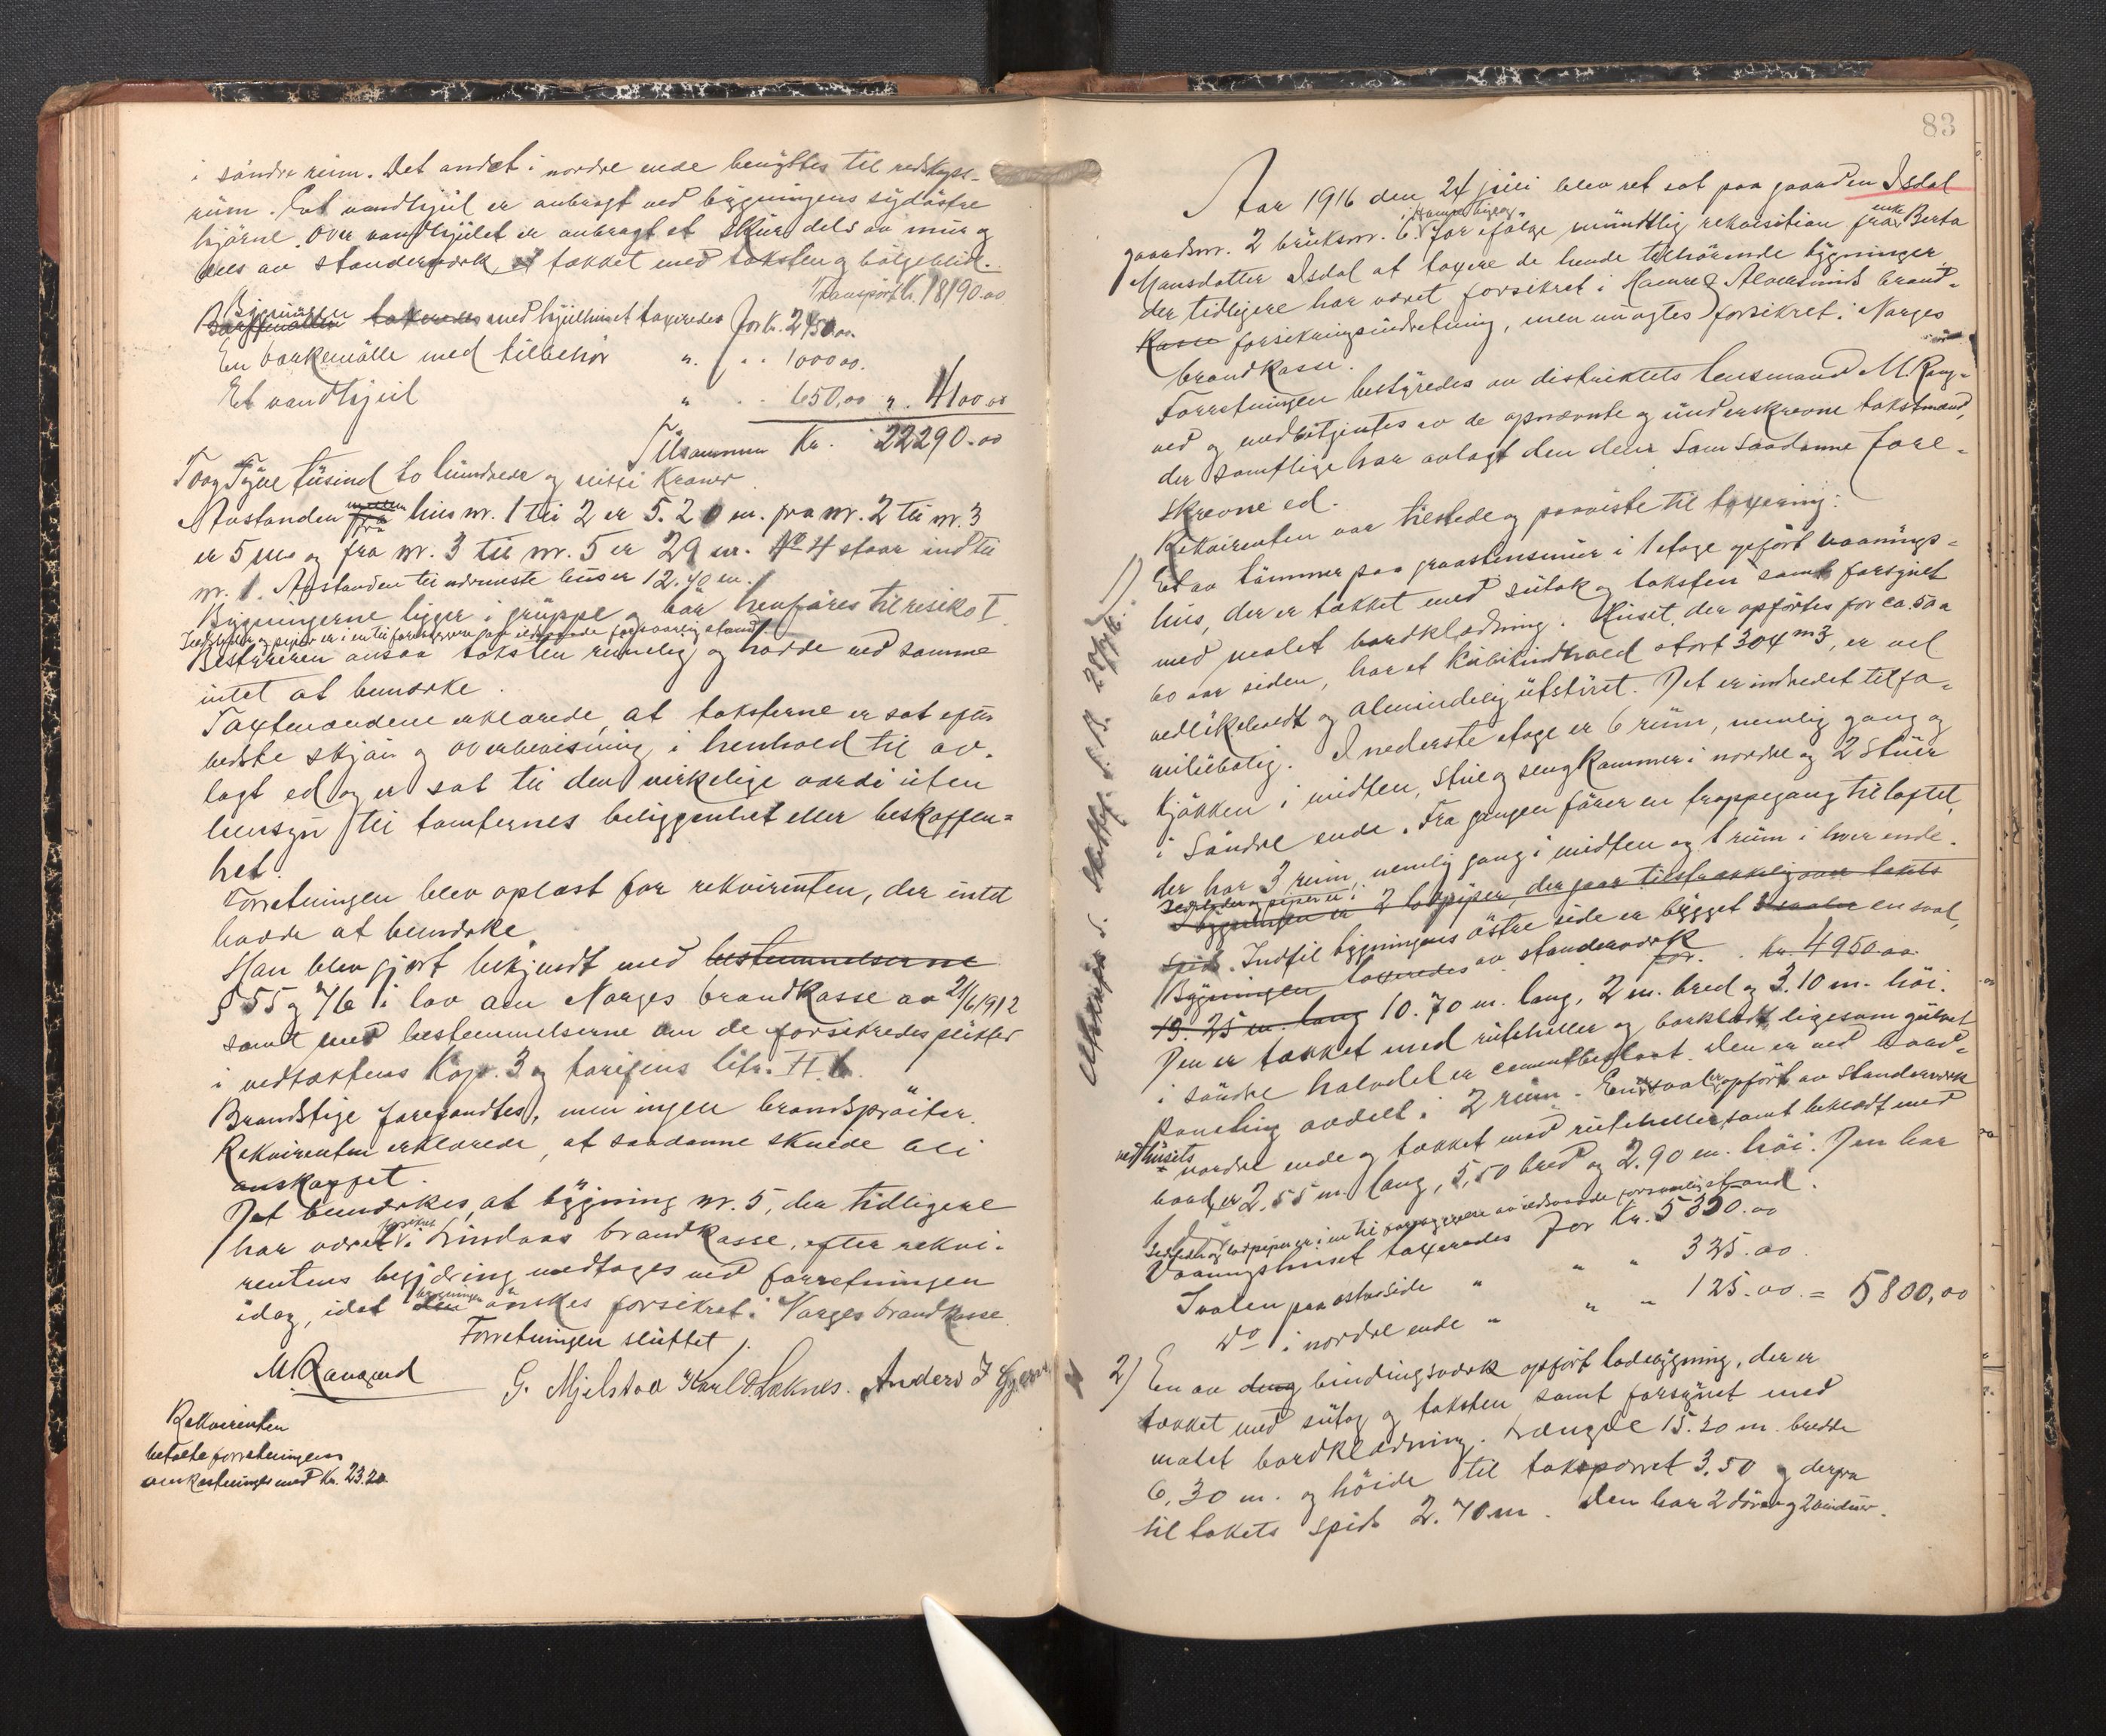 i søndre rum. Det andet i nordre ende benyttes til redskaps-
rum. Et vandhjul er anbragt ved bygningens sydøstre
hjørne. Over vandhjulet er anbragt et skur dels av mur og
dels av standerværk og tækket med taksten og bølgeblik.
Transport kr. 18190.00
Bygningen takseredes med hjulhuset taxeredes for kr. 2450.00
En barkemølle med tilbehør " " 1000 00.
Et vandhjul " " 650,00 " 4100.00
Tilsammen Kr. 22290.00
Toog Tyve tusind to hundrede og nitti Kroner.
Avstanden mellem fra hus nr. 1 til 2 er 5.20 m. fra nr. 2 til nr. 3
er 5 m. og fra nr. 3 til nr. 5 er 29 m. No 4 staar ind til
nr. 1. Avstanden til nærmeste hus er 12.40 m.
Bygningerne ligger i gruppe og bør henføres til risiko I.
Ildsteder og piper er i en til forebyggen av ildsvaade forsvarlig stand
Bestyreren ansaa taksten rimelig og hadde ved samme
intet at bemerke.
Taxtmændene erklærede, at taksterne er sat efter
bedste skjøn og overbevisning i henhold til av-
lagt ed og er sat til den virkelige værdi uten
hensyn til tomternes beliggenhet eller beskaffen=
het.
Forretningen blev oplæst for rekvirenten, der intet
havde at bemerke.
Han blev gjort bekjendt med bestemmelserne
§ 55 og 76 i lov om Norges brandkasse av 21/6 1912
samt med bestemmelserne om de forsikredes plikter
i vedtæktens Kap. 3 og tarifens litr. H. b.
Brandstige forefandtes, men ingen brandsprøiter.
Rekvirenten erklærede, at saadanne skulde bli
anskaffet.
Det bemerkes, at bygning nr. 5, der tidligere
har været forsikret i Lindaas brandkasse, efter rekvi-
rentens begjæring medtages ved forretningen
idag, idet den bygningen ønskes forsikret i Norges brandkasse.
Forretningen sluttet.
M Rangved G. Mjelstad Karl O. Løknes. Anders I
Rekvirenten
betalte forretningens
omkostninger med Kr. 23.20
83
Aar 1916 den 24 juli blev ret sat paa gaarden Isdal
gaardsnr. 2 bruksnr. 6 i Hamre tinglag for ifølge mundtlig rekvisition fra enke Berta
Monsdatter Isdal at taxere de hende tilhørende bygninger
der tidligere har været forsikret i Hamre & Alversunds brand-
kasse forsikringsindretning, men nu agtes forsikret i Norges
brandkasse.
Forretningen bestyredes av distriktets lensmand M. Rang-
ved og medbetjentes av de opnævnte og underskrevne takstmænd,
der samtlige har avlagt den dem som saadanne fore-
skrevne ed.
Rekvirenten var tilstede og paaviste til taxering:
1) Et av tømmer paa graastensmur i 1 etage opført vaanings-
hus, der er tækket med sutak og taksten samt forsynet
med malet bordklædning. Huset, der opførtes for ca. 50 a
60 aar siden, har et kubikindhold stort 304 m3, er vel
vedlikeholdt og almindelig utstyret. Det er indredet til fa-
miliebolig. I nederste etage er 6 rum, nemlig gang og
kjøkken i midten, stue og sengkammer i nordre og 2 stuer
i søndre ende. Fra gangen fører en trappegang til loftet,
der har 3 rum, nemlig gang i midten og 1 rum i hver ende.
Ildsteder og piper er i
I bygningen er 2 lodpiper, der gaar tilstrækkelig over takets
spids. Indtil bygningens østre side er bygget en sval,
Bygningen taxeredes av standerværk for. Kr. 4950.00
19.25 m. lang 10.70 m. lang, 2 m. bred og 3.10 m. høi.
Den er tækket med rutheller og bordklædt, ligesom gulvet
i søndre halvdel er cementbestøpt. Den er ved bord-
paneling avdelt i 2 rum. En sval er opført av standerværk
ved husets nordre ende og tækket med rutheller samt beklædt med
bord, er 2,55 m. lang, 5,50 bred og 2.90 m. høi. Den har
1 dør.
Ildsteder og lodpiper er i en til forebyggen av ildsvaade forsvarlig stand.
Vaaningshuset taxeredes for Kr. 5350.00
Svalen paa østre side " " " 325.00
Do i nordre ende " " " 125.00 = 5800,00
2) En av bindingsværk opført ladebygning, der er
tækket med sutag og taksten samt forsynet med
malet bordklædning. Længde 15.30 m. bredde
6,30 m. og høide til taksparret 3,50 og derfra
til takets spids 2.70 m. Den har 2 døre og 2 vinduer.